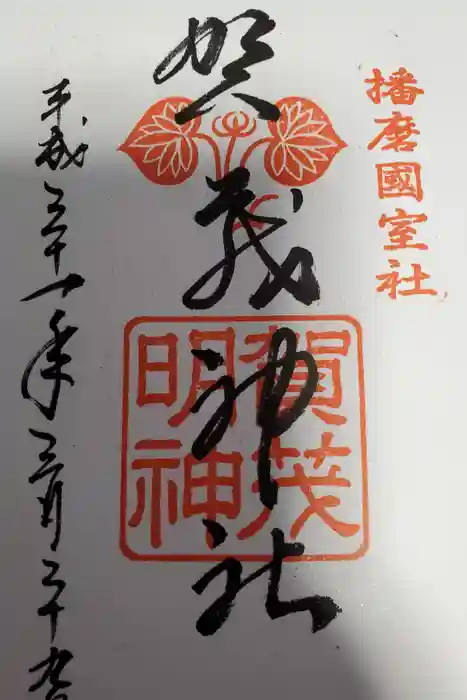 播磨國室社
賀茂神社
賀茂
明神
平成三十一年三月三十九